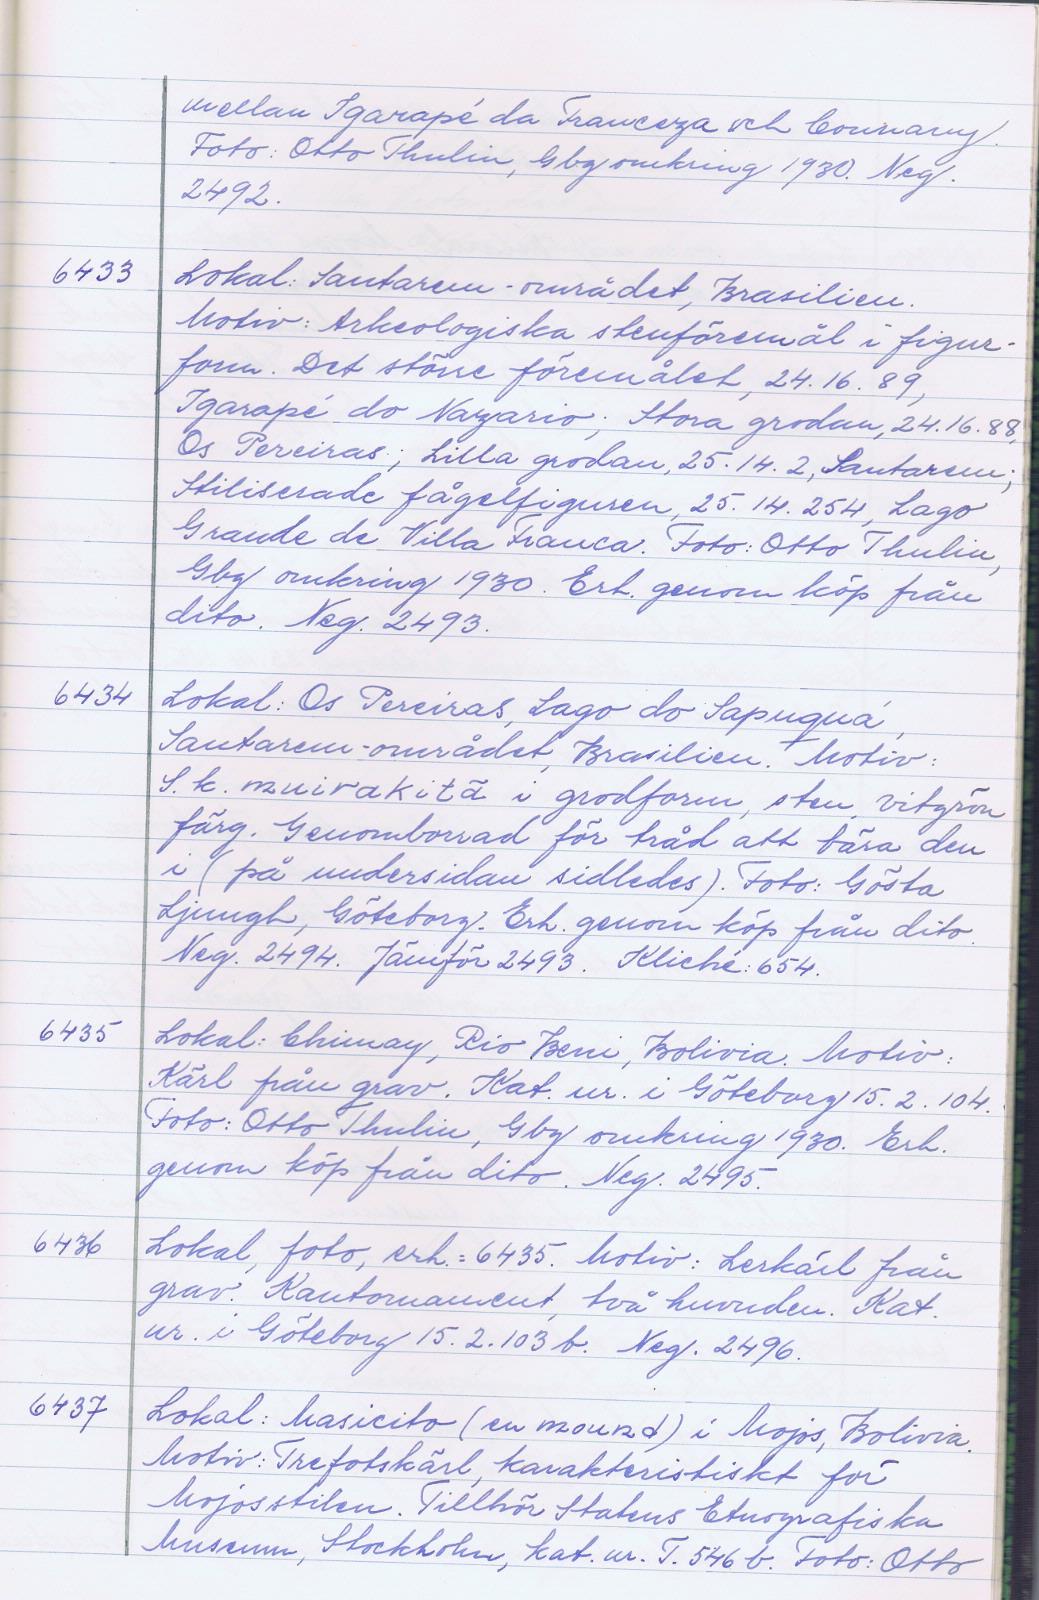 mellan Igarapé da Franceza och Counany.
Foto: Otto Thulin, Gbg omkring 1930. Neg.
2492.
6433 Lokal: Santarem-området, Brasilien.
Motiv: Arkeologiska stenföremål i figur-
form. Det större föremålet, 24.16.89,
Igarapé do Nazario; Stora grodan, 24.16.88,
Os Pereiras; Lilla grodan, 25.14.2, Santarem;
Stiliserade fågelfiguren, 25.14.254, Lago
Grande de Villa Franca. Foto: Otto Thulin,
Gbg omkring 1930. Erh. genom köp från
dito. Neg. 2493.
6434 Lokal: Os Pereiras, Lago do Sapuquá,
Santarem-området, Brasilien. Motiv:
S.k. muirakitã i grodform, sten, vitgrön
färg. Genomborrad för tråd att bära den
i (på undersidan sidledes). Foto: Gösta
Ljungh, Göteborg. Erh. genom köp från dito.
Neg. 2494. Jämför 2493. Kliché: 654.
6435 Lokal: Chimay, Rio Beni, Bolivia. Motiv:
Kärl från grav. Kat. nr. i Göteborg 15.2.104.
Foto: Otto Thulin, Gbg omkring 1930. Erh.
genom köp från dito. Neg. 2495.
6436 Lokal, foto, erh. = 6435. Motiv: Lerkärl från
grav. Kantornament, två huvuden. Kat.
nr. i Göteborg 15.2.103 b. Neg. 2496.
6437 Lokal: Masicito (en mound) i Mojos, Bolivia.
Motiv: Trefotskärl, karakteristiskt för
Mojosstilen. Tillhör Statens Etnografiska
Museum, Stockholm, kat. nr. T. 546 b. Foto: Otto